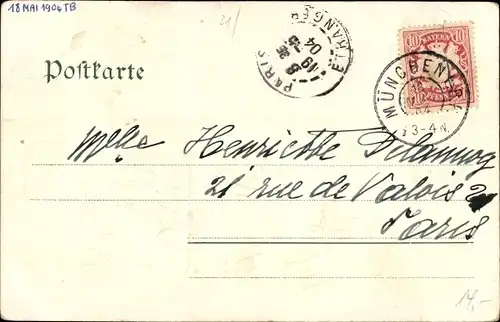 18 MAI 1904 TB
PARIS ETRANGER
19 -5
04
BAYERN
10 10
PFENNIG
MÜNCHEN
3-4 N.
Postkarte
Mlle Henriette Delannoy
21 rue de Valois 21
Paris
14,-